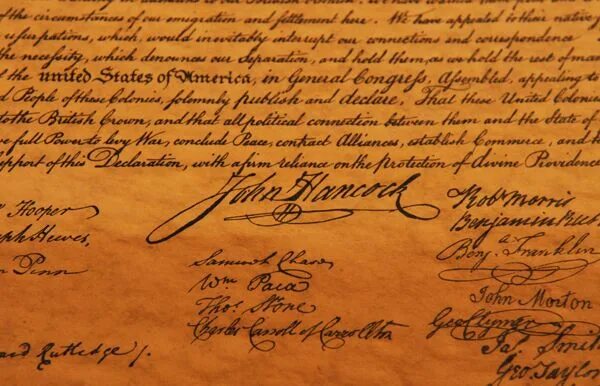 of the circumstances of our emigration and settlement here. We have appealed to their native
usurpations, which, would inevitably interrupt our connections and correspondence
the necessity, which denounces our Separation, and hold them, as we hold the rest of man
the united States of America, in General Congress, Assembled, appealing to
People of these Colonies, solemnly publish and declare, That these United Colonie
to the British Crown, and that all political connection between them and the State of
full Power to levy War, conclude Peace, contract Alliances, establish Commerce, and to
pport of this Declaration, with a firm reliance on the protection of divine Providence
John Hancock
Robt Morris
Hooper
Benjamin Rush
ph Hewes,
Benja Franklin
Penn
Samuel Chase
Wm Paca
John Morton
Thos Stone
Geo Clymer
Charles Carroll of Carrollton
Jas Smith
ard Rutledge /.
Geo Taylor